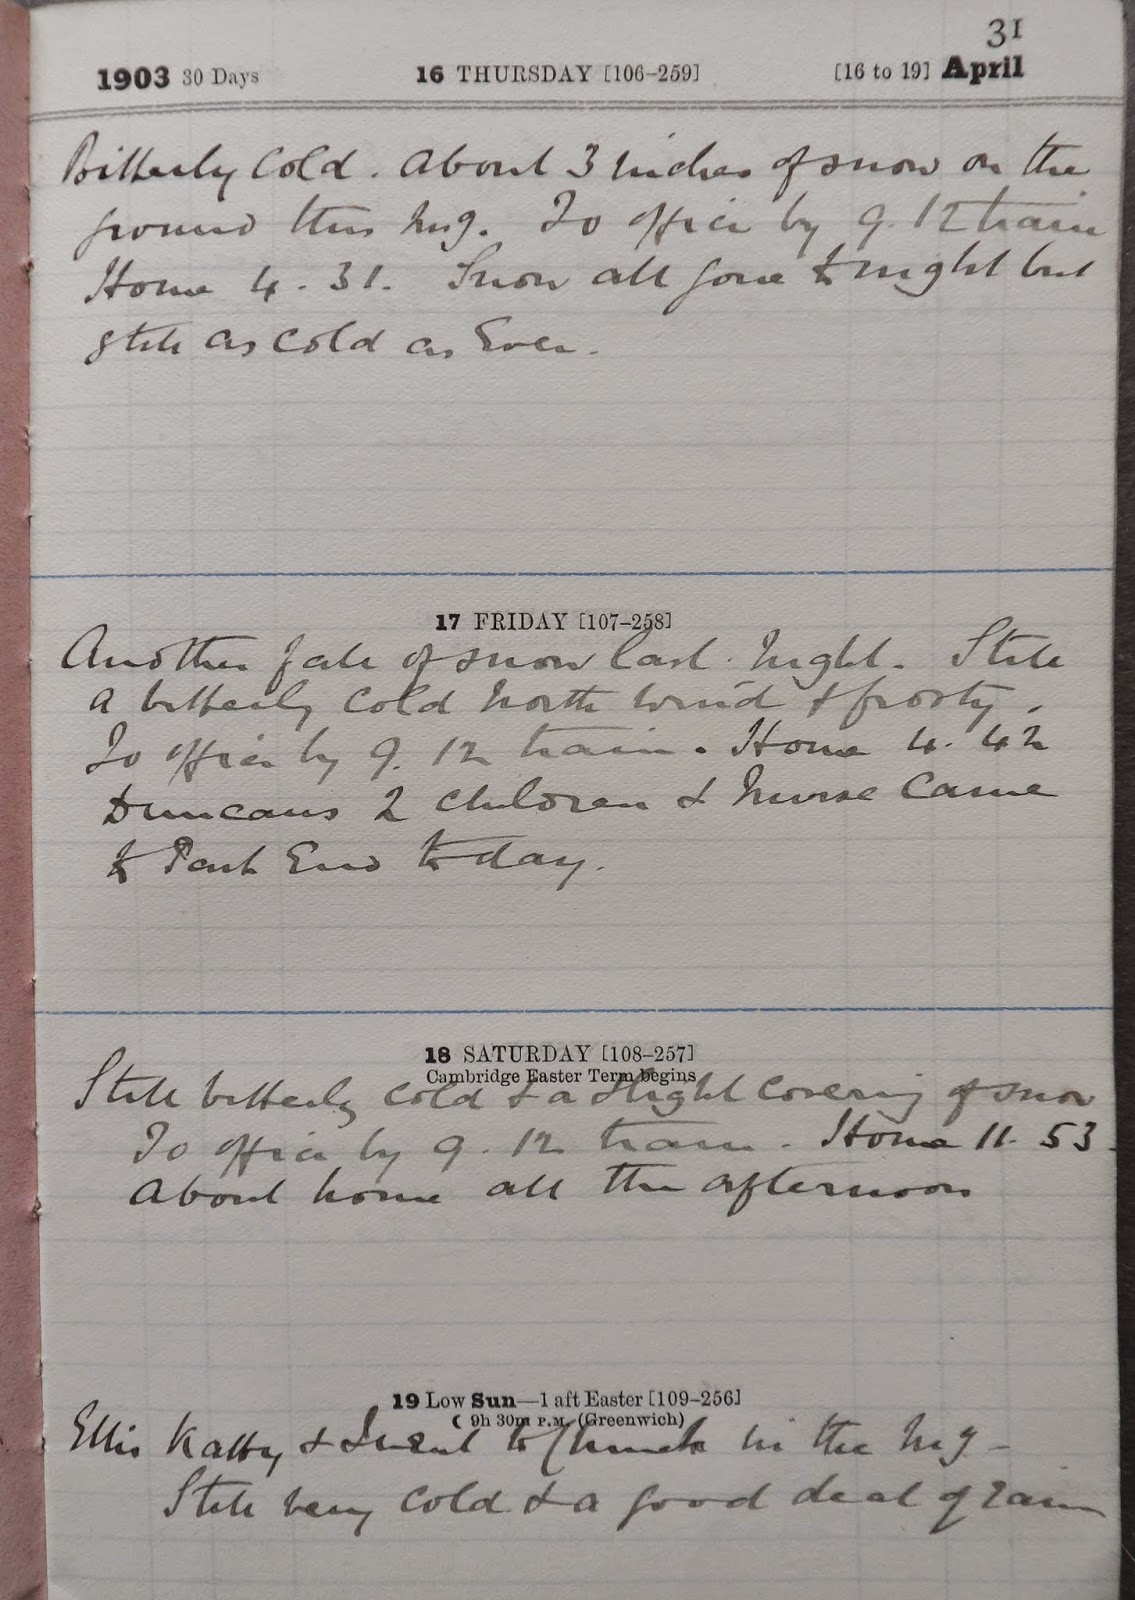 31
1903 30 Days 16 THURSDAY [106-259] [16 to 19] April
Bitterly Cold. About 3 inches of snow on the
ground this mg. To office by 9.12 train
Home 4.31. Snow all gone to night but
still as cold as Ever.
17 FRIDAY [107-258]
Another fall of snow last night. Still
a bitterly cold North wind & frosty.
To office by 9.12 train. Home 4.42
Duncans 2 children & Nurse Came
to Park End today.
18 SATURDAY [108-257]
Cambridge Easter Term begins
Still bitterly cold & a slight covering of snow
To office by 9.12 train. Home 11.53.
About home all the afternoon
19 Low Sun—1 aft Easter [109-256]
☾ 9h 30m P.M. (Greenwich)
Ellis Katty & I went to Church in the mg -
Still very cold & a good deal of rain